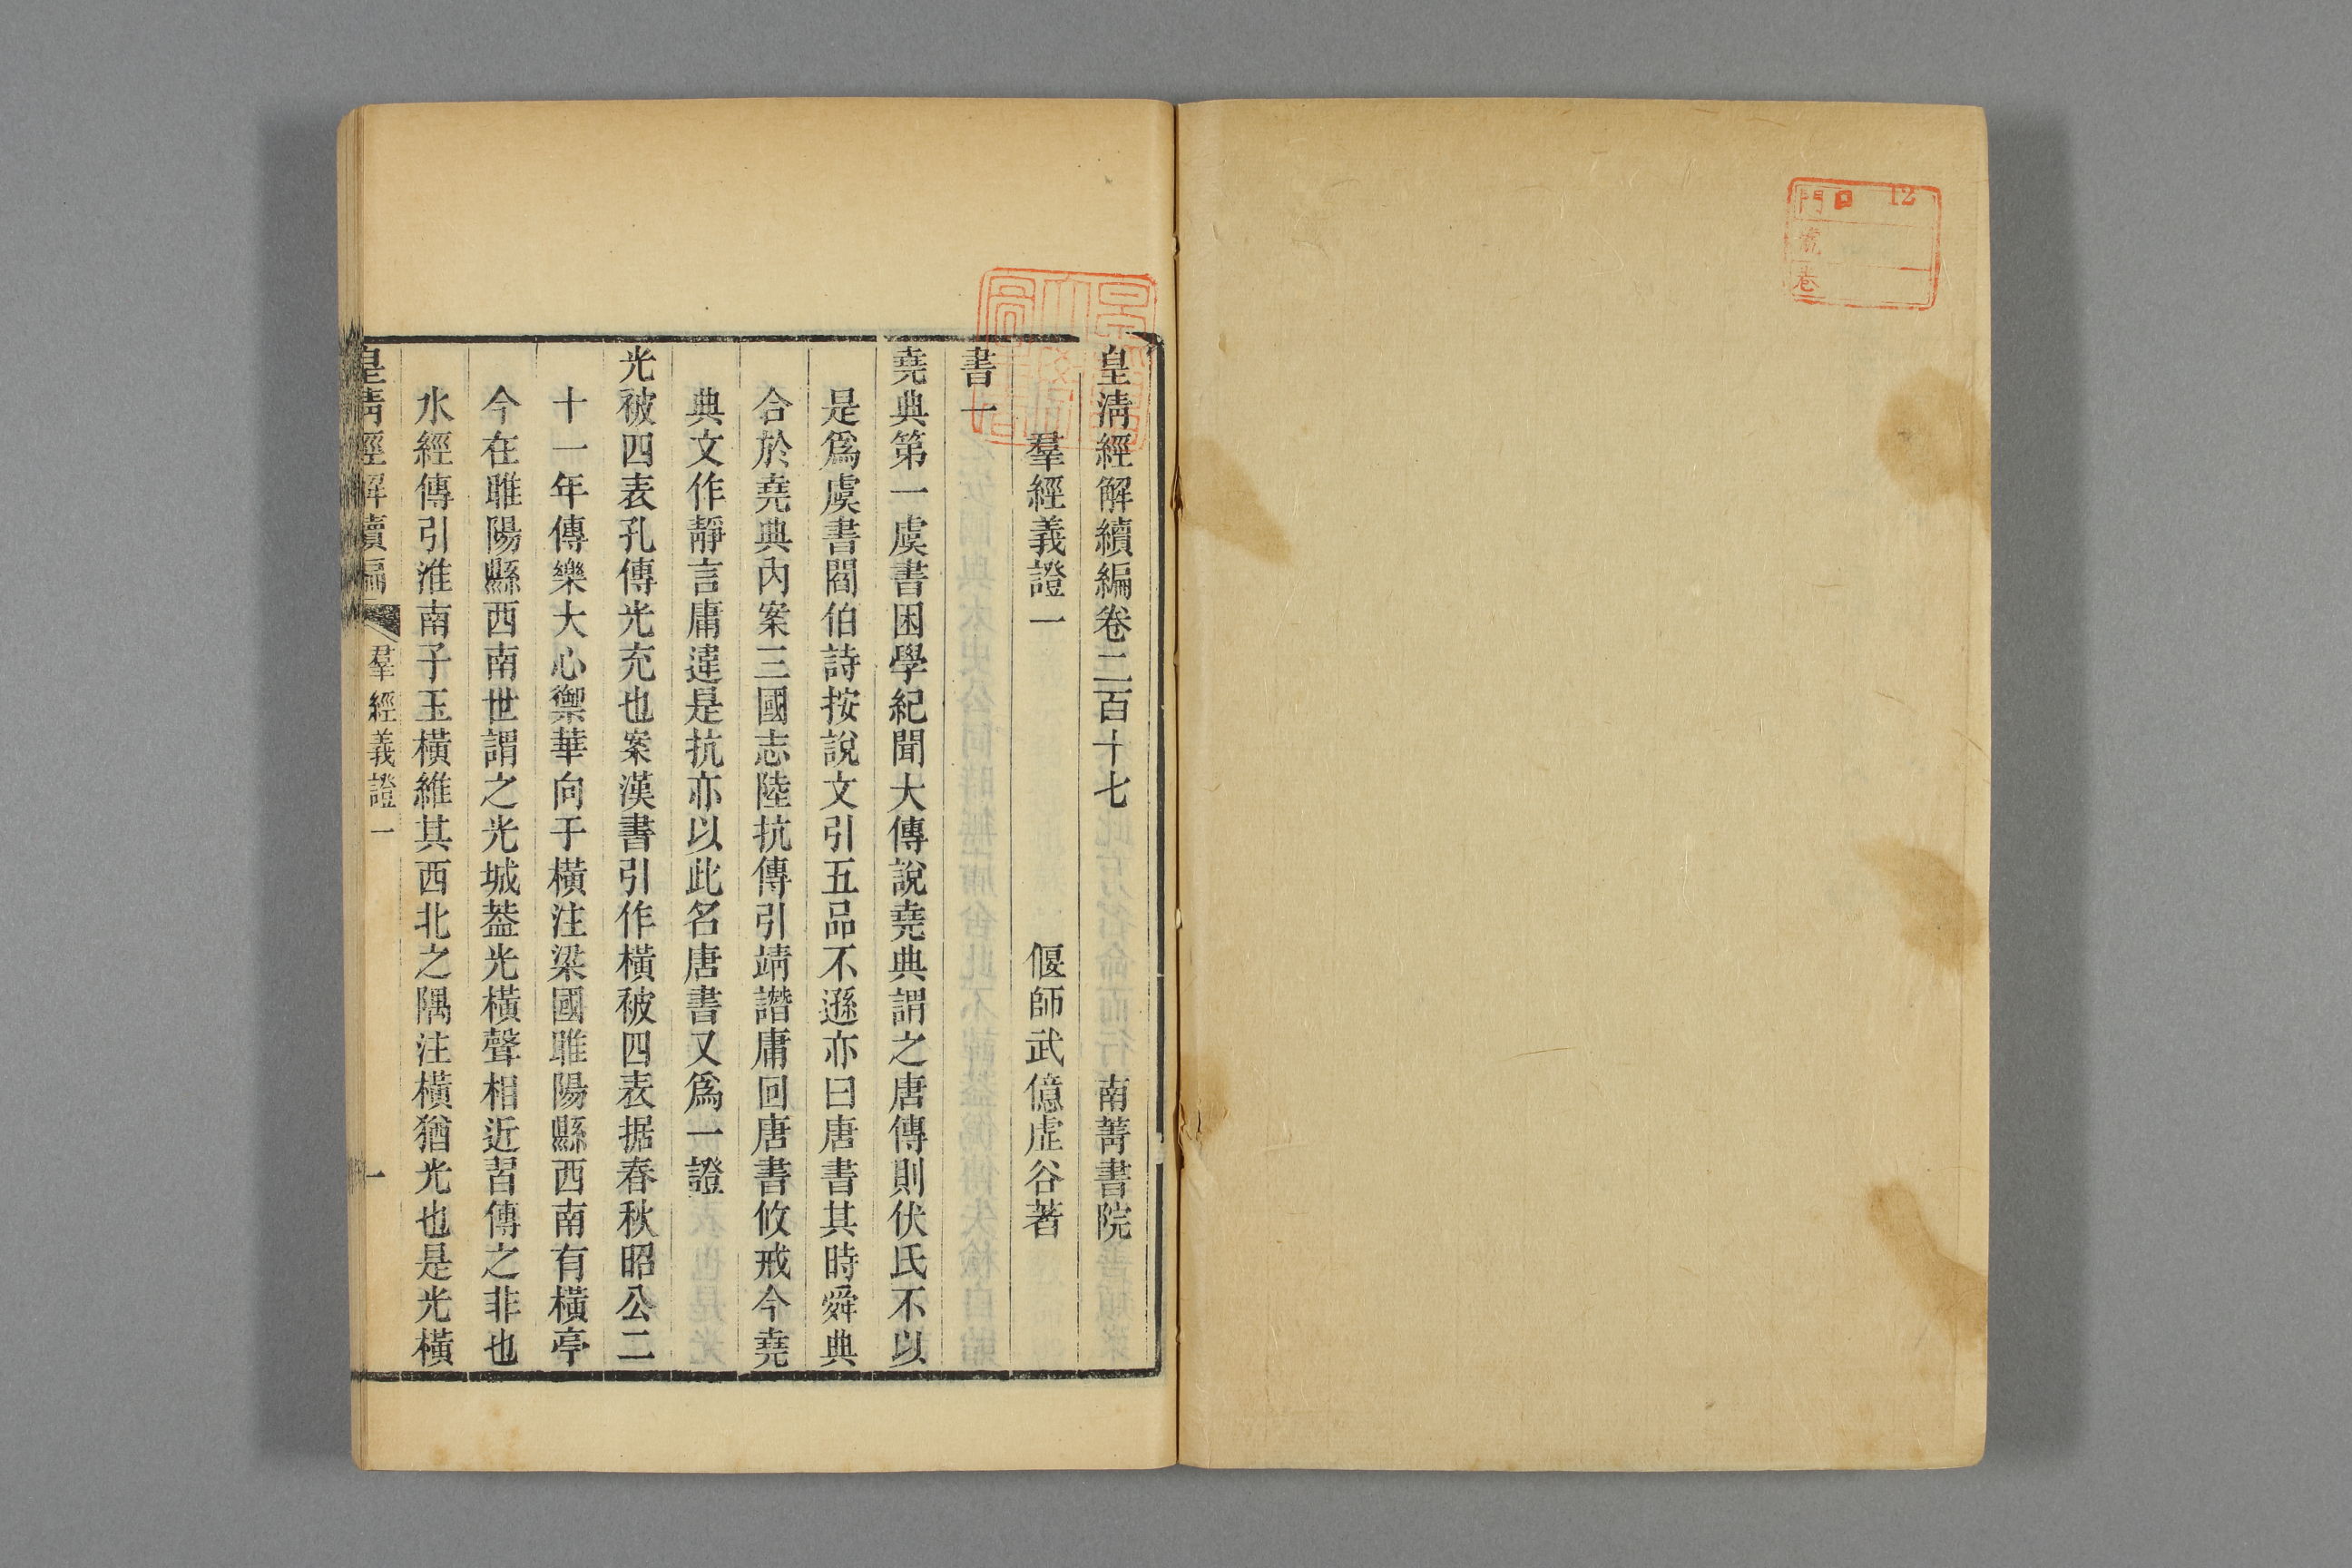 門 口 12
號
卷
皇淸經解續編卷二百十七 南菁書院
羣經義證一 偃師武億虛谷著
書一
堯典第一虞書困學紀聞大傳說堯典謂之唐傳則伏氏不以
是爲虞書閻伯詩按說文引五品不遜亦曰唐書其時舜典
合於堯典內案三國志陸抗傳引靖譖庸回唐書攸戒今堯
典文作靜言庸違是抗亦以此名唐書又爲一證
光被四表孔傳光充也案漢書引作橫被四表据春秋昭公二
十一年傳樂大心禦華向于橫注梁國睢陽縣西南有橫亭
今在睢陽縣西南世謂之光城葢光橫聲相近習傳之非也
水經傳引淮南子玉橫維其西北之隅注橫猶光也是光橫
皇淸經解續編 羣經義證一 一